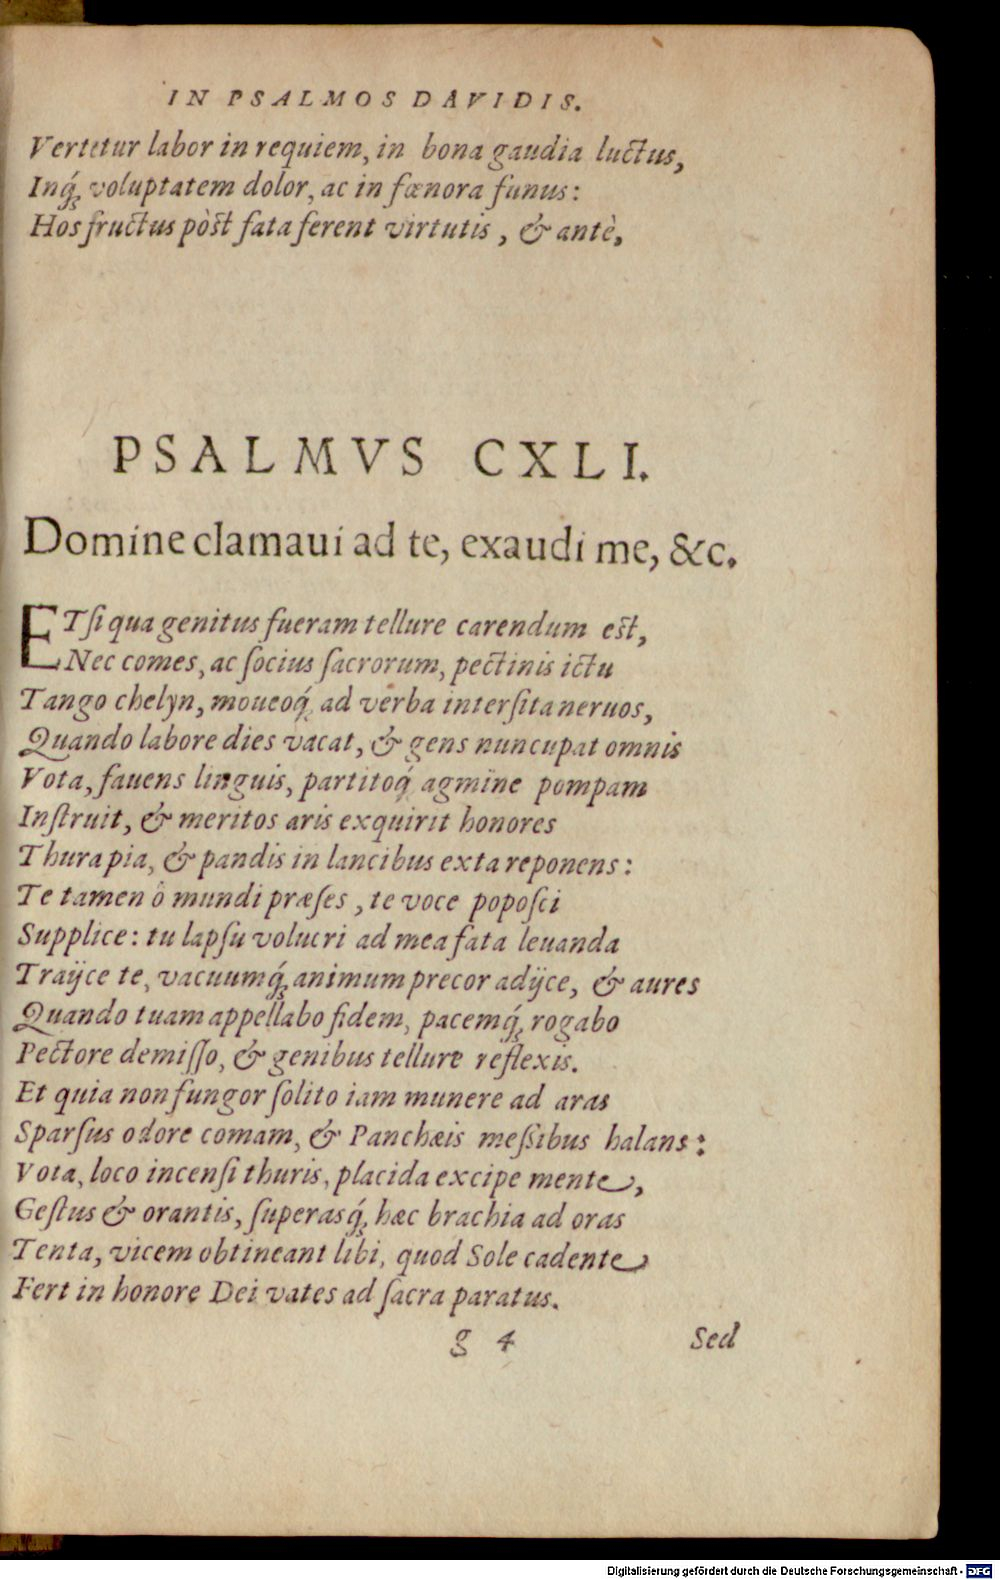 IN PSALMOS DAVIDIS.
Vertetur labor in requiem, in bona gaudia luctus,
Inq́; voluptatem dolor, ac in fœnora funus:
Hos fructus pòst fata ferent virtutis, & antè,
PSALMVS CXLI.
Domine clamaui ad te, exaudi me, &c.
ETſi qua genitus fueram tellure carendum est,
Nec comes, ac ſocius ſacrorum, pectinis ictu
Tango chelyn, moueoq́; ad verba interſita neruos,
Quando labore dies vacat, & gens nuncupat omnis
Vota, fauens linguis, partitoq́; agmine pompam
Inſtruit, & meritos aris exquirit honores
Thura pia, & pandis in lancibus exta reponens:
Te tamen ô mundi præſes, te voce popoſci
Supplice: tu lapſu volucri ad mea fata leuanda
Traijce te, vacuumq́; animum precor adijce, & aures
Quando tuam appellabo fidem, pacemq́; rogabo
Pectore demiſſo, & genibus tellure reflexis.
Et quia non fungor ſolito iam munere ad aras
Sparſus odore comam, & Panchæis meſsibus halans:
Vota, loco incenſi thuris, placida excipe mente,
Geſtus & orantis, ſuperasq́; hæc brachia ad oras
Tenta, vicem obtineant libi, quod Sole cadente
Fert in honore Dei vates ad ſacra paratus.
g 4 Sed
Digitalisierung gefördert durch die Deutsche Forschungsgemeinschaft - DFG